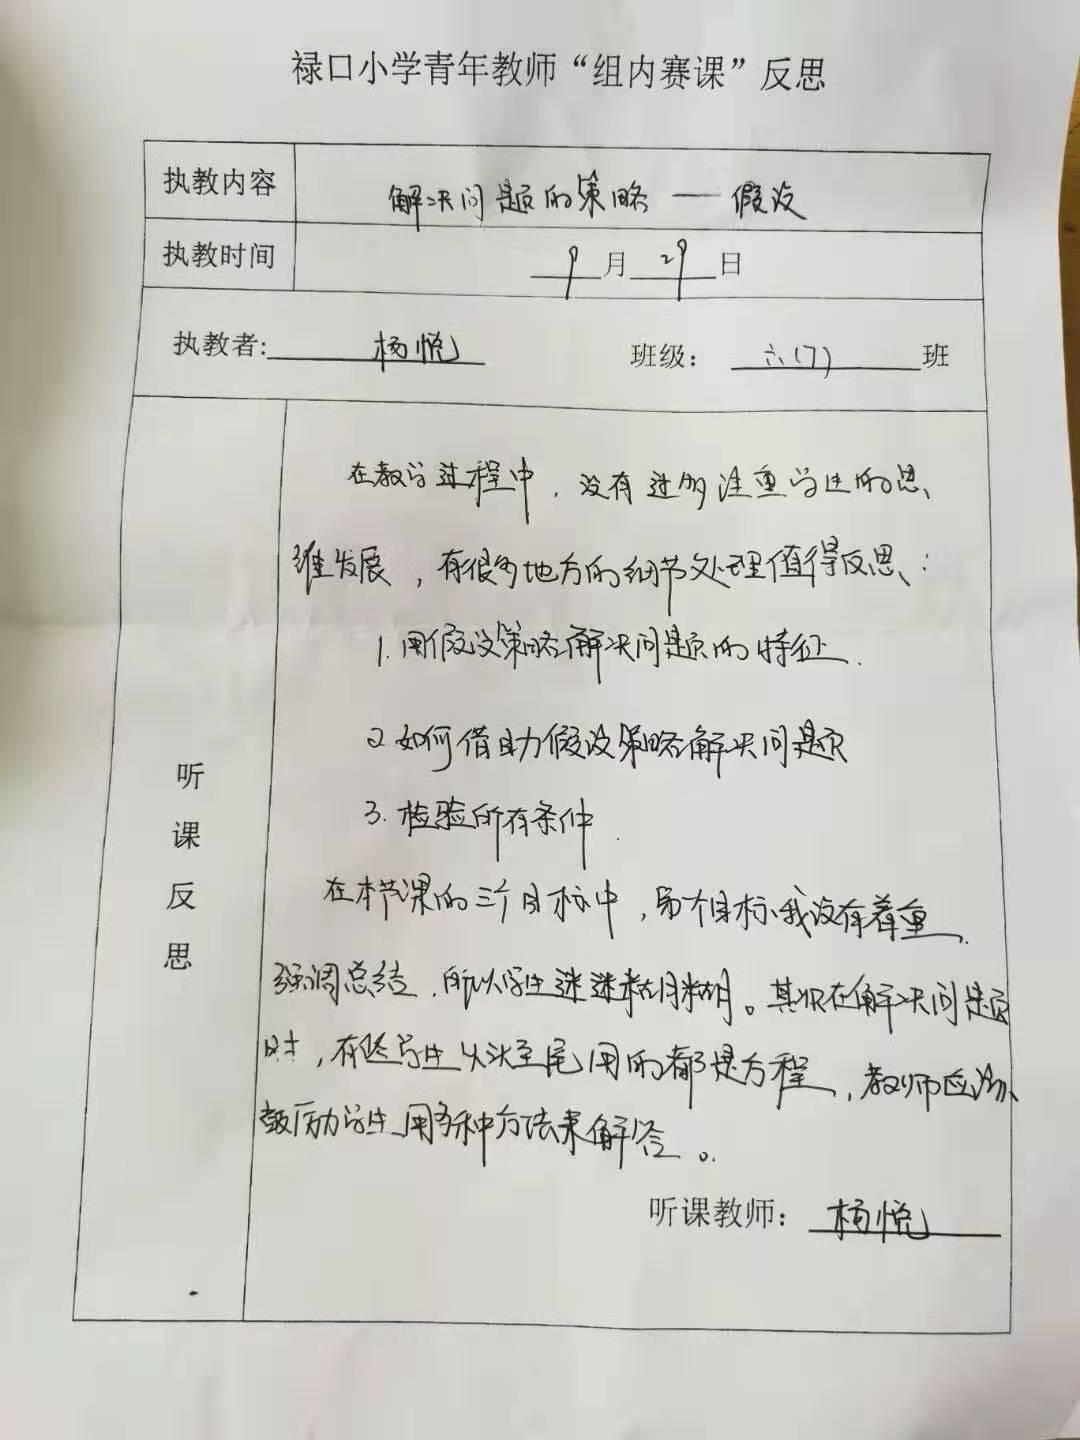 禄口小学青年教师“组内赛课”反思
执教内容 解决问题的策略——假设
执教时间 9月29日
执教者: 杨悦 班级: 六(7)班
听课反思
在教学过程中，没有过多注重学生的思
维发展，有很多地方的细节处理值得反思：
1.用假设策略解决问题的特征.
2.如何借助假设策略解决问题
3.检验所有条件.
在本节课的三个目标中，目标我没有着重
强调总结，所以学生迷迷糊糊。其次在解决问题
时，有些学生从头至尾用的都是方程，教师应该
鼓励学生用多种方法来解答。
听课教师: 杨悦